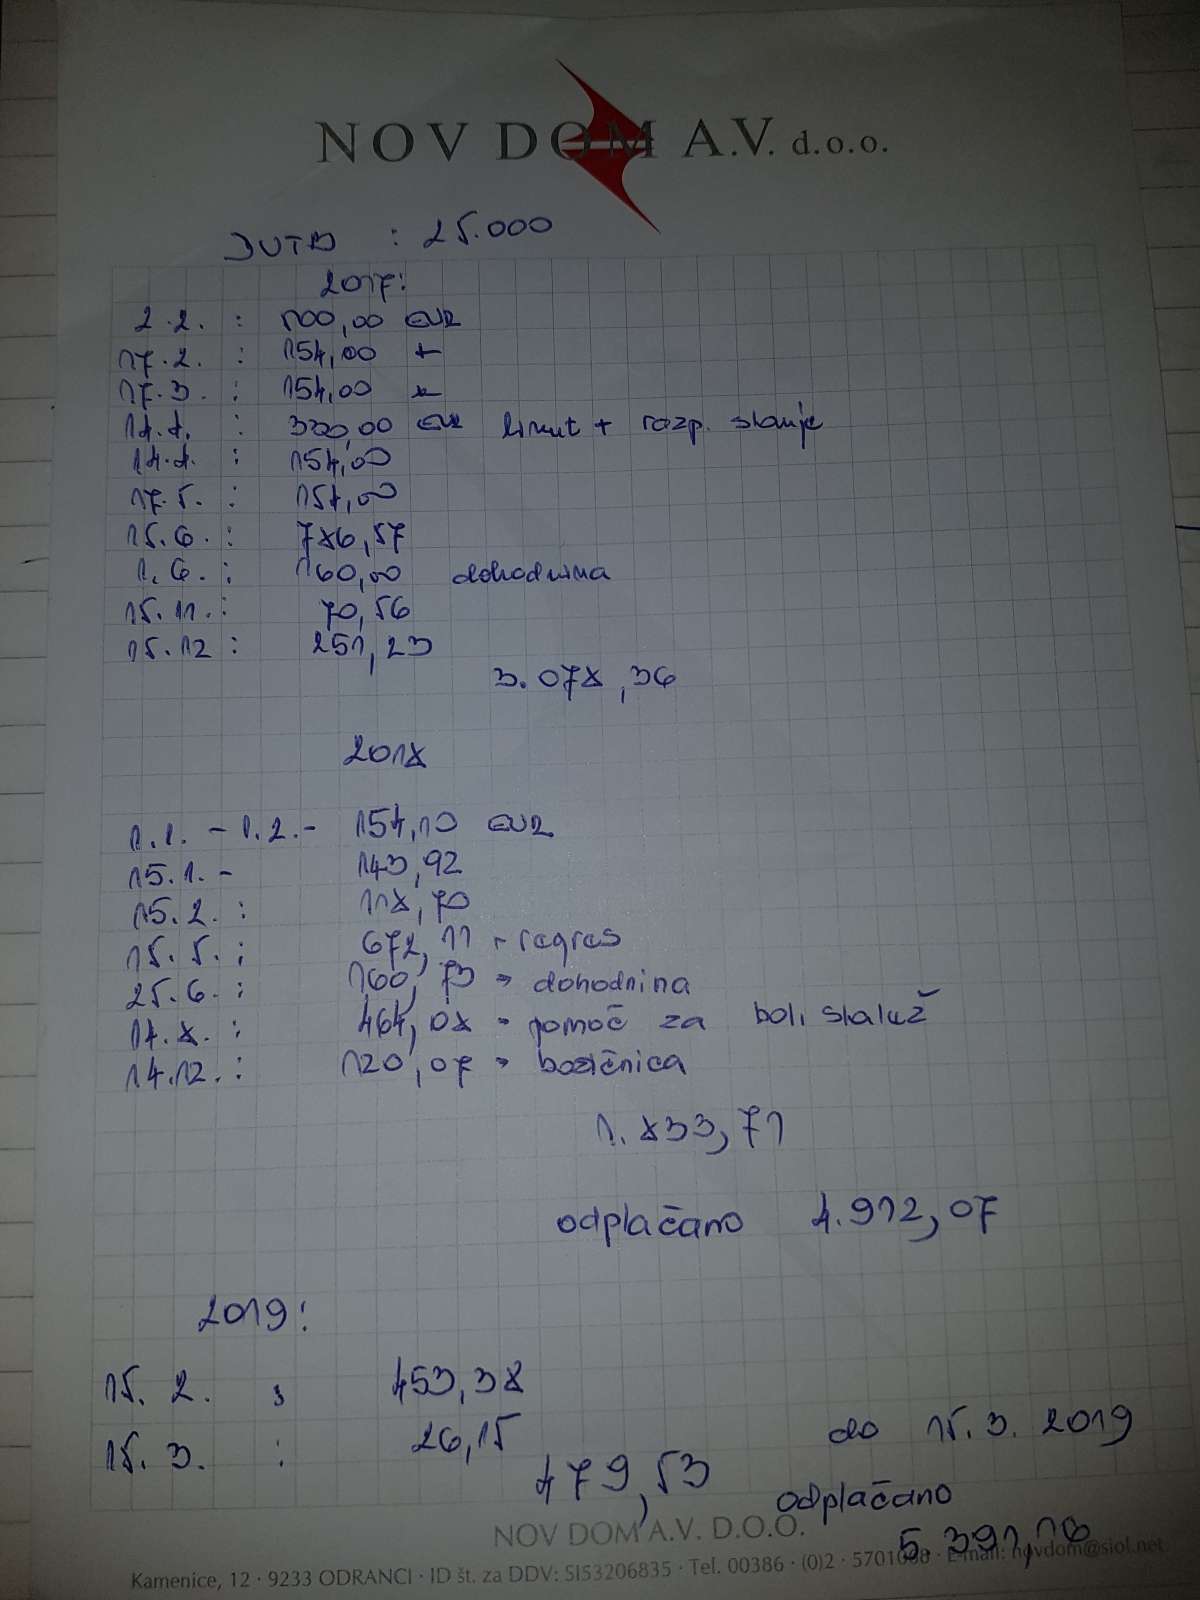 NOV DOM A.V. d.o.o.
DUTB : 25.000
2017:
2.2. : 100,00 EUR
17.2. : 154,00 +
17.3. : 154,00
14.4. : EUR limit + razp. stanje
14.4. : 154,00
17.5. : 154,00
15.6. : 786,57
1.6. : 160,00 dohodnina
15.11. : 70,56
15.12 : 251,23
3.078,36
2018
1.1. - 1.2. - 154,10 EUR
15.1. - 143,92
15.2. : 118,70
15.5. : 672,11 - regres
25.6. : 160,73 - dohodnina
14.8. : 464,08 - pomoč za boli. stalež
14.12. : 120,07 - božičnica
1.833,71
odplačano 4.912,07
2019:
15. 2. : 453,38
15. 3. : 26,15
479,53
do 15.3. 2019
odplačano
5.391,16
NOV DOM A.V. D.O.O.
Kamenice, 12 · 9233 ODRANCI · ID št. za DDV: SI53206835 · Tel. 00386 · (0)2 · 5701 · E-mail: novdom@siol.net